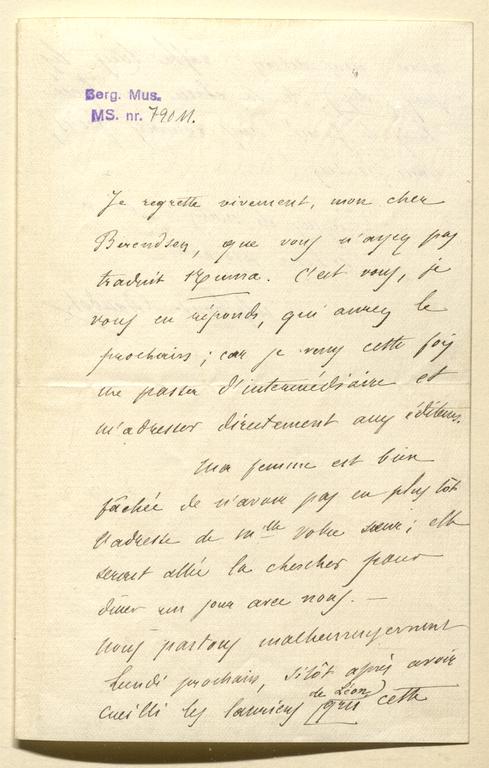 Berg. Mus.
MS. nr. 790 M.
Je regrette vivement, mon cher
Berendsen, que vous n'ayez pas
traduit Numa. C'est vous, je
vous en réponds, qui aurez le
prochain; car je veux cette fois
me passer d'intermédiaire et
m'adresser directement aux éditeurs.
Ma femme est bien
fâchée de n'avoir pas eu plus tôt
l'adresse de Mlle votre sœur; elle
serait allée la chercher pour
dîner un jour avec nous. —
Nous partons malheureusement
Lundi prochain, sitôt après avoir
cueilli les lauriers de Léon cette